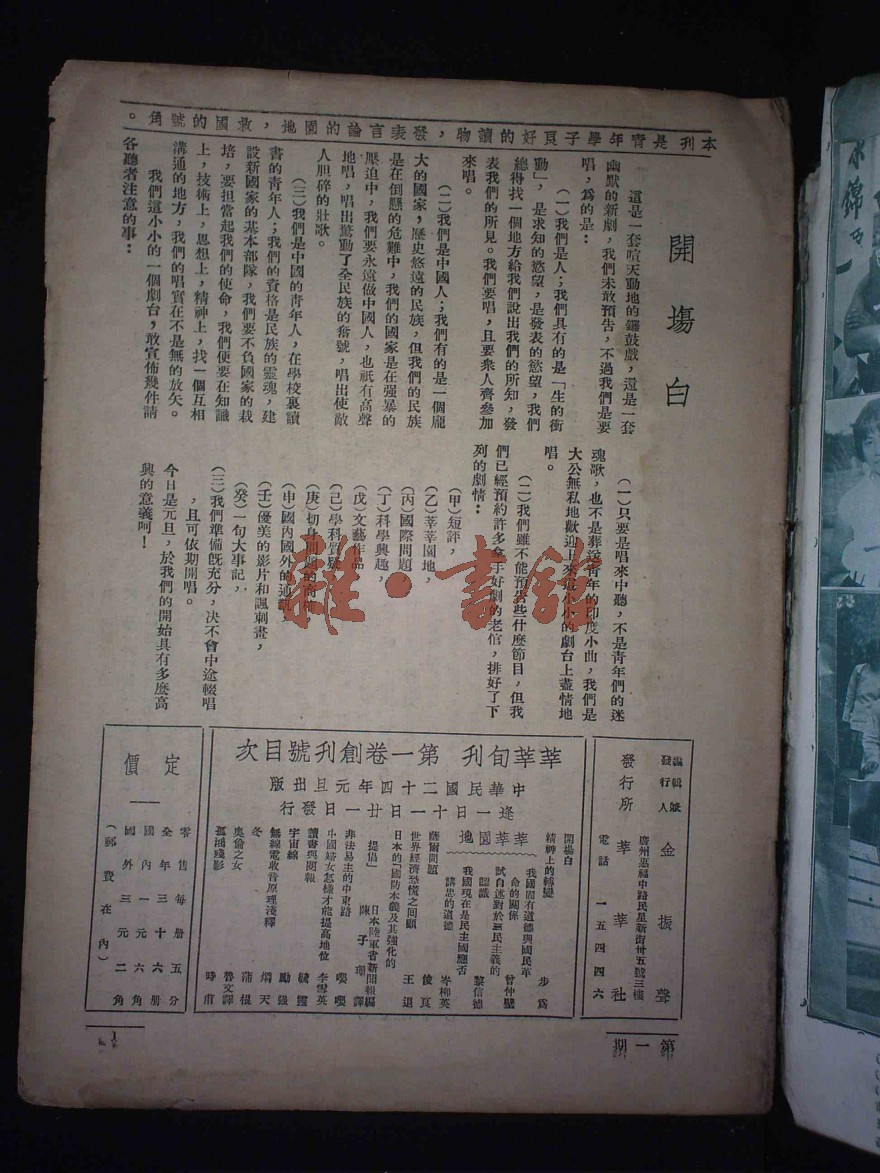 本刊是青年學子良好的讀物，發表言論的園地，救國的號角。
開場白
這是一套喧天動地的鑼鼓戲，還是一套
幽默的新劇，我們未敢預告，不過我們是要
唱，爲的是：
（一）我們是人；我們具有的是「生的衝
動」，是求知的慾望，是發表的慾望，我們
總得找一個地方給我們說出我們的所知，發
表我們的所見。我們要唱，且要衆人齊參加
來唱。
（二）我們是中國人；我們有的是一個龐
大的國家，歷史悠遠的民族，但我們的民族
是在倒懸的危難中，我們的國家是在强暴的
壓迫中，我們要永遠做中國人，也祇有高聲
地唱，唱出驚動了全民族的奮號，唱出使敵
人胆碎的壯歌。
（三）我們是中國的青年人，在學校裏讀
書的青年人；我們的資格是民族的靈魂，建
設新國家的基本部隊，我們要不負國家的栽
培，要担當起我們的使命，我們便要在知識
上，技術上，思想上，精神上，找一個互相
溝通的地方，我們的唱實在不是無的放矢。
我們這小小的一個劇台，敢宣佈幾件請
各聽者注意的事：
（一）只要是唱來中聽，不是青年們的迷
魂歌，也不是葬送青年的印度小曲，我們是
大公無私地歡迎上來這小小的劇台上盡情地
唱。
（二）我們雖不能預告些什麼節目，但我
們已經預約許多拿手好劇的老倌，排好了下
列的劇情：
（甲）短評，
（乙）莘莘園地，
（丙）國際問題
（丁）科學興趣，
（戊）文藝作品
（己）學科質疑
（庚）切身問題的
（申）國內國外的通訊
（壬）優美的影片和諷刺畫，
（癸）一句大事記，
（三）我們準備旣充分，決不會中途輟唱
，且可依期開唱。
今日是元旦，於我們的開始具有多麼高
興的意義呵！
編輯兼發行人 金振聲
發行所 莘莘社
廣州惠福中路民星新街卅五號三樓
電話 一五四四六
莘莘旬刊 第一卷創刊號目次
中華民國二十四年元旦出版
逢一日十一日廿一日發行
開場白
精神上的轉變 步爲
莘莘園地
我國固有道德與國民革命的關係 曾仲璧
試自述對於三民主義的認識 黎信德
我國現在是民主國應否講忠的道德 岑柳英
薩爾問題 俊良
世界經濟恐慌之回顧 王退
日本的「國防本義及其強化的提倡」 日本陸軍省新聞報編 陳子瓊譯
非法易主的中東路 嘤嘤
中國婦女怎樣才能提高地位 李雪英
讀書與閱報 毓靈
宇宙線 勵錢
無線電收音原理淺釋 熠天
冬 蒲根
奧倫之女 魯文譯
孤鴻殘影 時甫
定價
零售每册五分
全年三十六册
國內一元六角
國外三元二角
（郵費在內）
第一期
1
雜·書館